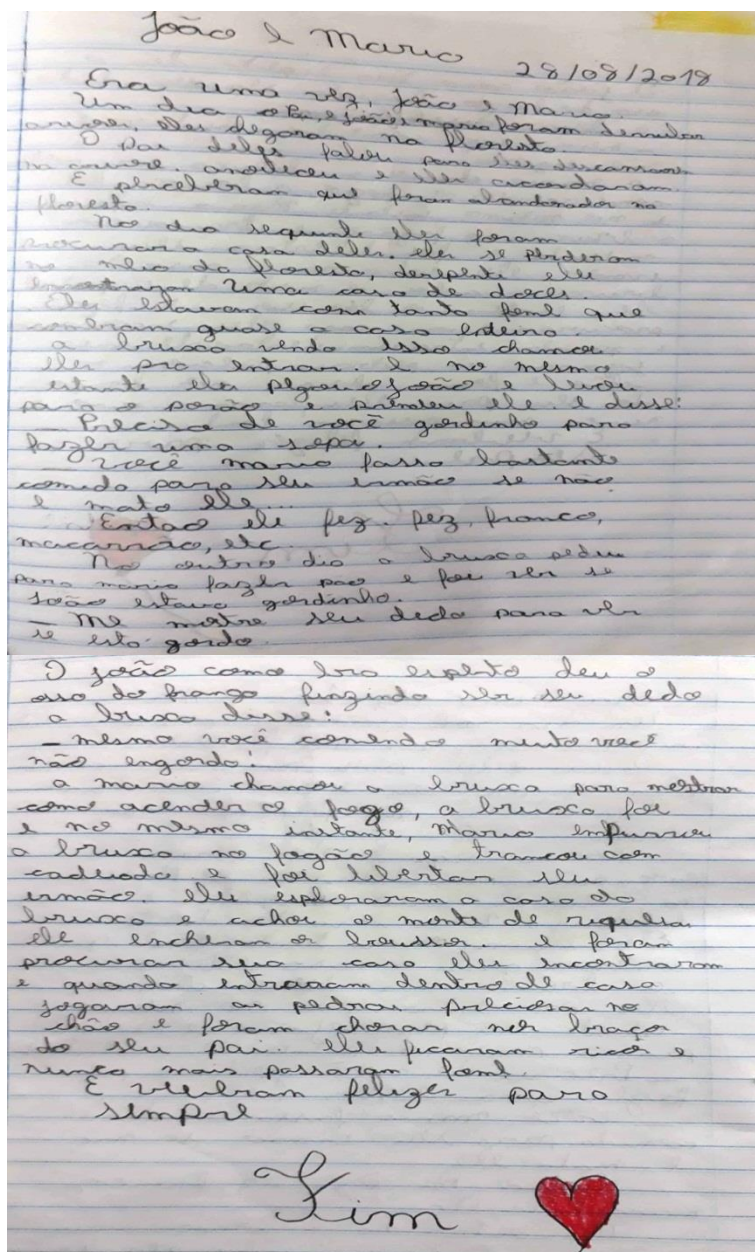 João e Maria
28/08/2018
Era uma vez, João e Maria.
Um dia o Pai, e João e maria foram derrubar
arvores, eles chegaram na floresta.
O Pai deles falou para eles descansarem
na arvore. anoiteceu e eles acordaram.
E perceberam que foram abandonados na
floresta.
No dia seguinte eles foram
procurar a casa deles. eles se perderam
no meio da floresta, derepente eles
encontraram uma casa de doces.
Eles estavam com tanta fome que
comeram quase a casa enteira.
a bruxa vendo isso chamou
eles pra entrar. e no mesmo
estante ela pegou o João e levou
para o porão e prendeu ele. e disse:
— Precisa de você gordinho para
fazer uma sopa.
— você maria fassa bastante
comida para seu irmão se não
e mato ele...
Entao ele fez. fez, franco,
macarrão, etc
No outro dia a bruxa pediu
para maria fazer pao e foi ver se
João estava gordinho.
— Me mostre seu dedo para ver
se esta gordo.
O joão como era esperto deu o
osso do frango finzindo ser seu dedo
a bruxa disse:
— mesmo você comendo muito você
não engorda!
a maria chamou a bruxa para mostrar
como acender o fogo, a bruxa foi
e no mesmo instante, Maria empurrou
a bruxa no fogão e trancou com
cadeado e foi libertar seu
irmão. eles esploraram a casa da
bruxa e achou o monte de
ele encheram os boussos. e foram
procurar sua casa eles encontraram
e quando entraram dentro de casa
jogaram as pedras preciosas no
chão e foram chorar nos braços
do seu pai. eles ficaram ricos e
nunca mais passaram fome.
E viveram felizes para
sempre
Fim